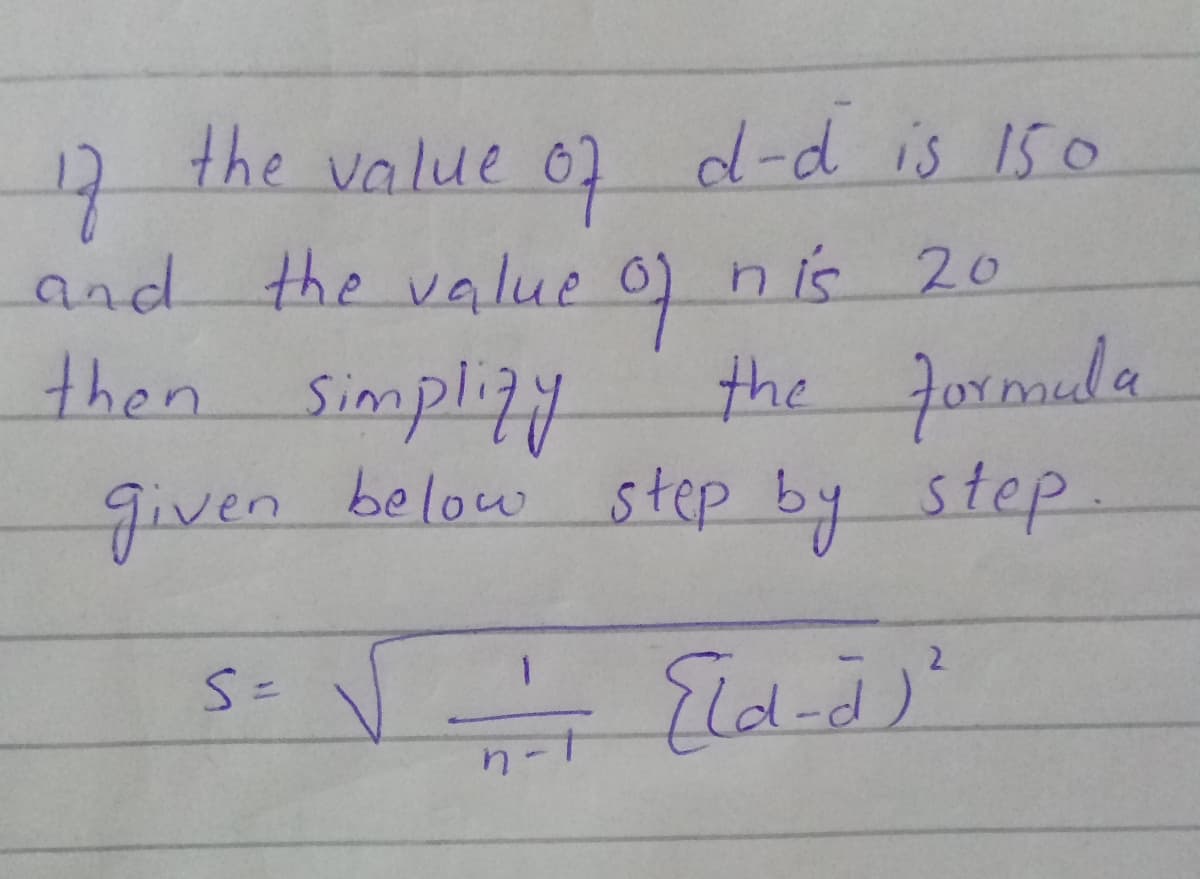 If the value of d-d̄ is 150
and the value of n is 20
then simplify the formula
given below step by step.
S = √ 1/n-1 Σ(d-d̄)²